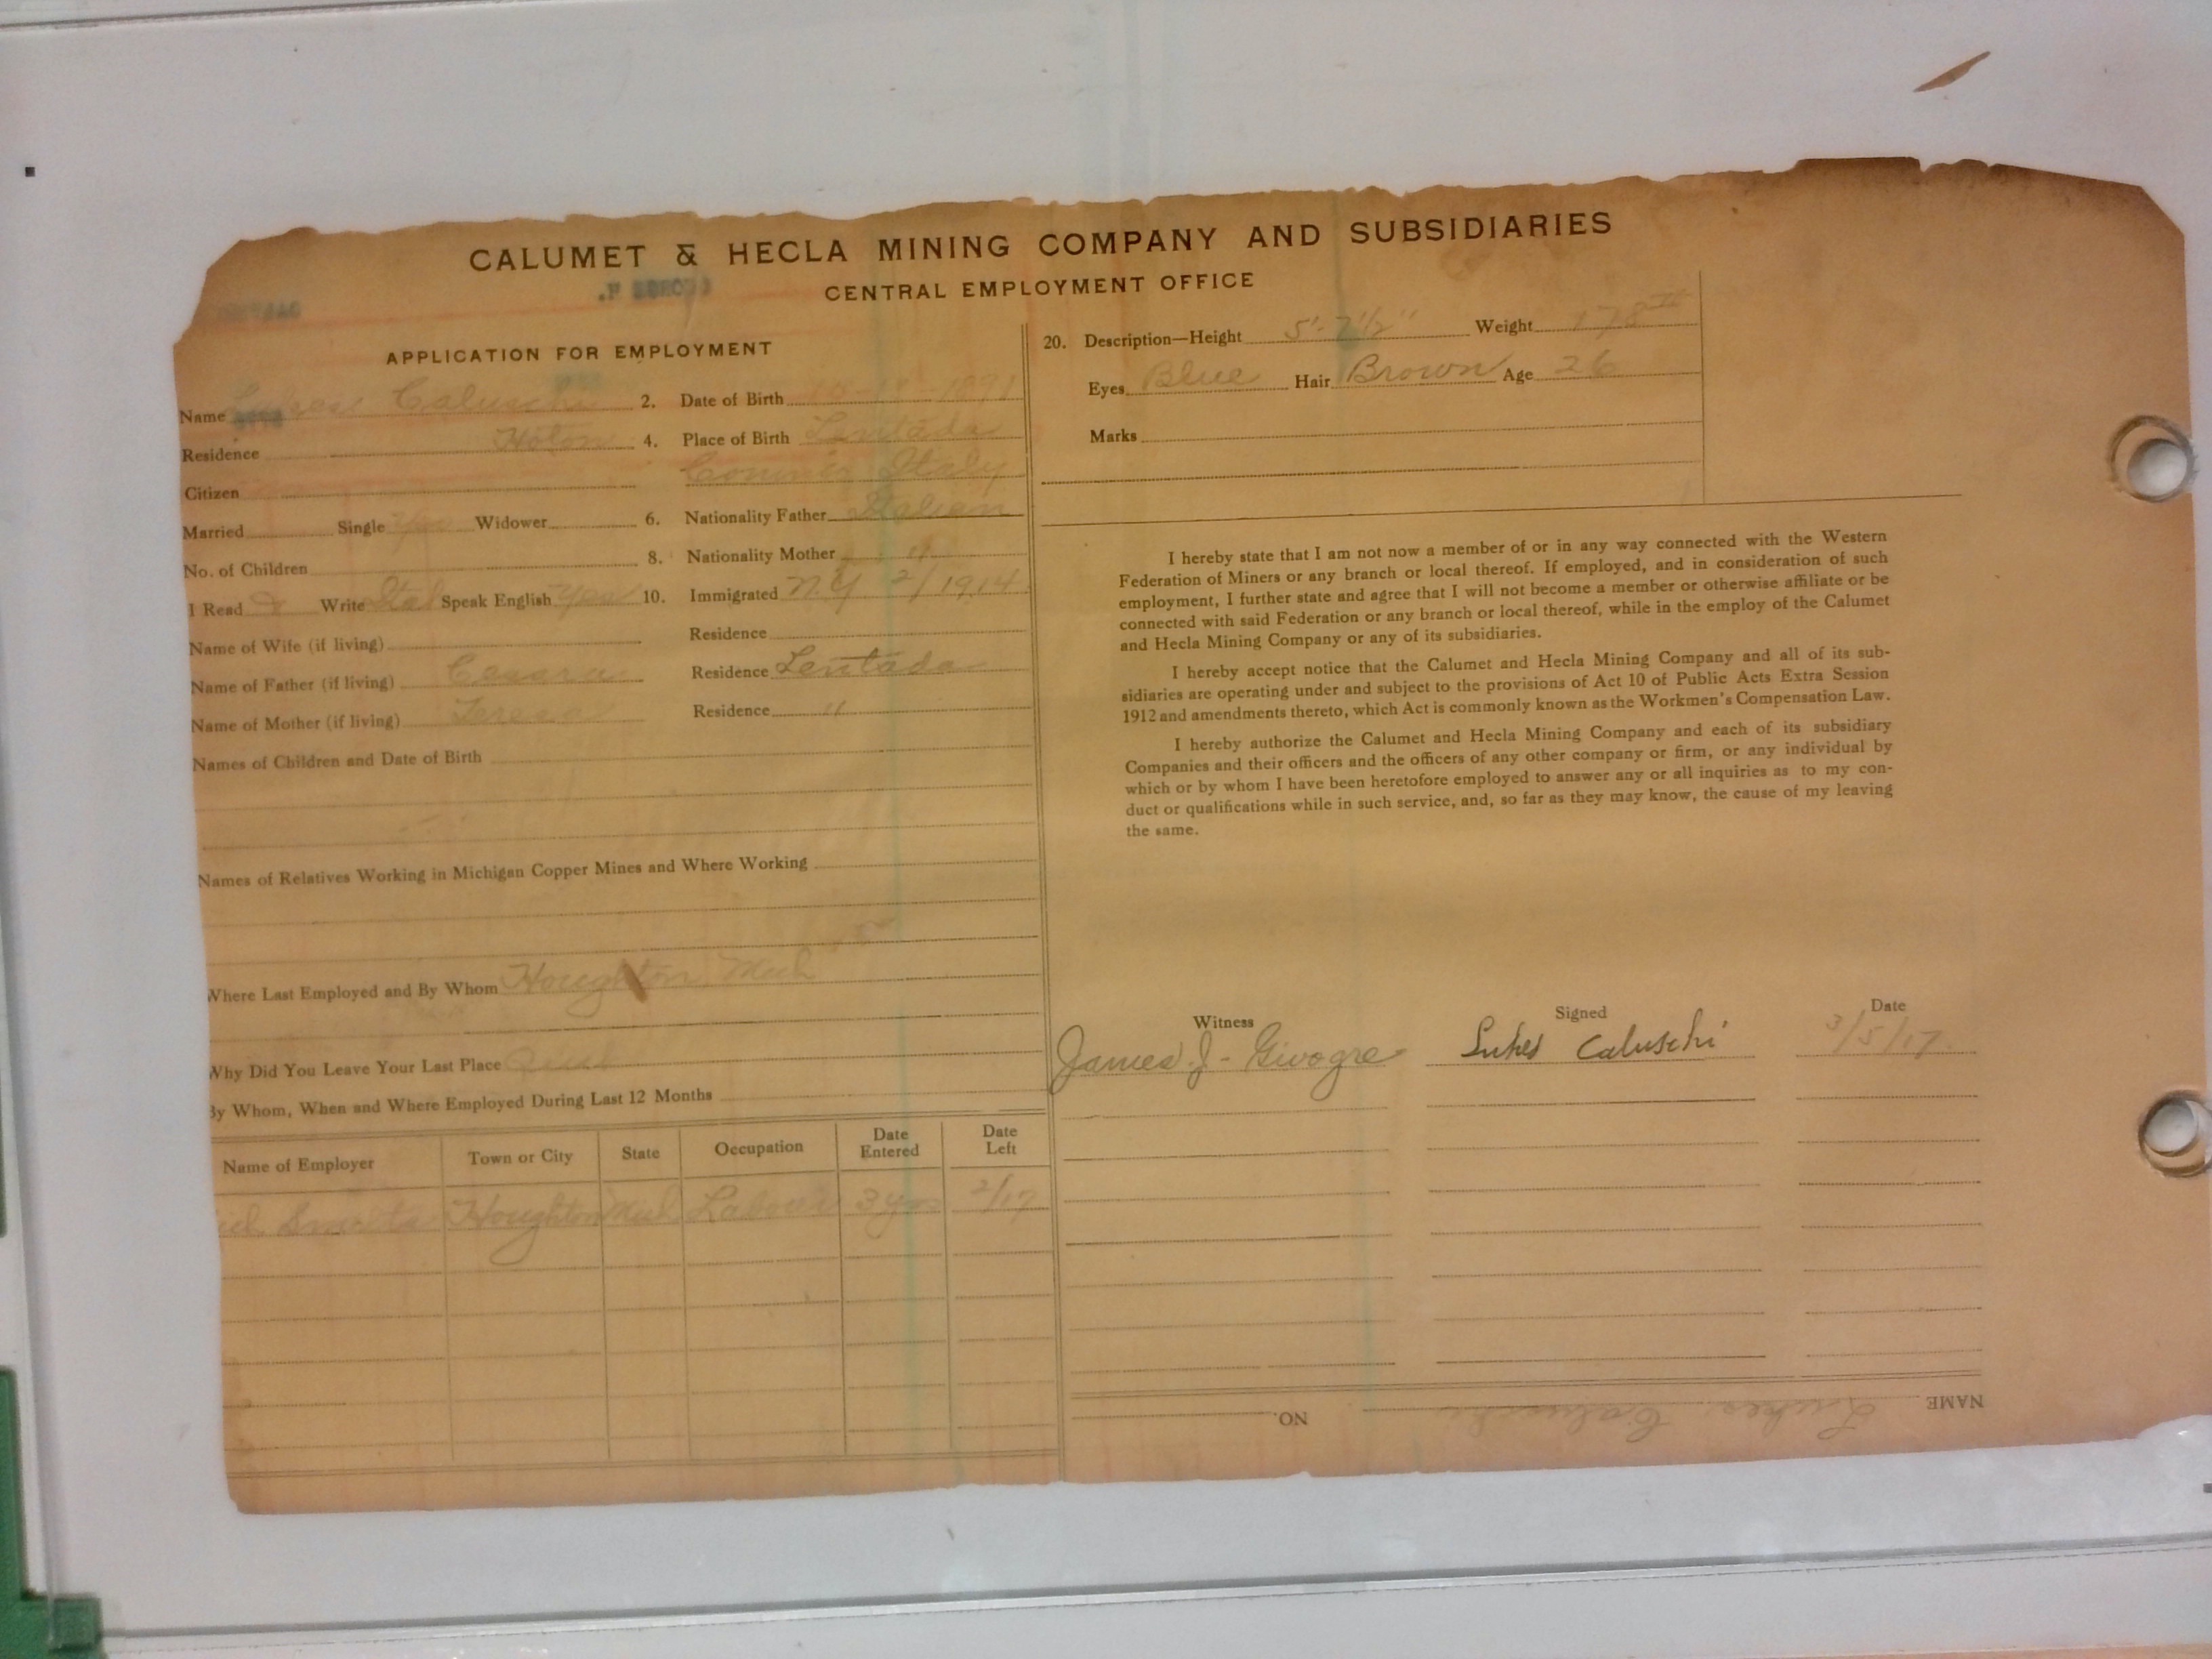 CALUMET & HECLA MINING COMPANY AND SUBSIDIARIES
CENTRAL EMPLOYMENT OFFICE
APPLICATION FOR EMPLOYMENT
Name Caluschi 2. Date of Birth 1891
Residence Holon 4. Place of Birth Lentada
Citizen Italy
Married Single Yes Widower 6. Nationality Father Italian
No. of Children 8. Nationality Mother "
1 Read & Write Ital Speak English Yes 10. Immigrated N.Y 2/1914
Name of Wife (if living) Residence
Name of Father (if living) Residence Lentada
Name of Mother (if living) Teresa Residence "
Names of Children and Date of Birth
Names of Relatives Working in Michigan Copper Mines and Where Working
Where Last Employed and By Whom Houghton, Mich
Why Did You Leave Your Last Place Quit
By Whom, When and Where Employed During Last 12 Months
Name of Employer Town or City State Occupation Date Entered Date Left
Houghton Mich Labour 3 yrs 2/17
20. Description—Height 5'-7 1/2" Weight 178
Eyes Blue Hair Brown Age 26
Marks
I hereby state that I am not now a member of or in any way connected with the Western
Federation of Miners or any branch or local thereof. If employed, and in consideration of such
employment, I further state and agree that I will not become a member or otherwise affiliate or be
connected with said Federation or any branch or local thereof, while in the employ of the Calumet
and Hecla Mining Company or any of its subsidiaries.
I hereby accept notice that the Calumet and Hecla Mining Company and all of its sub-
sidiaries are operating under and subject to the provisions of Act 10 of Public Acts Extra Session
1912 and amendments thereto, which Act is commonly known as the Workmen's Compensation Law.
I hereby authorize the Calumet and Hecla Mining Company and each of its subsidiary
Companies and their officers and the officers of any other company or firm, or any individual by
which or by whom I have been heretofore employed to answer any or all inquiries as to my con-
duct or qualifications while in such service, and, so far as they may know, the cause of my leaving
the same.
Witness Signed Date
James J. Givogre Lukes Caluschi 3/5/17
NAME Lukes Caluschi NO.